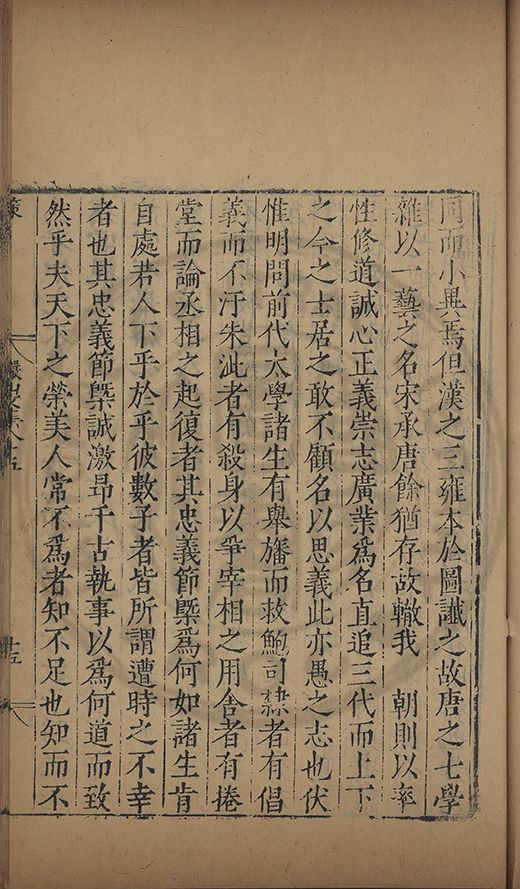 同而小異焉但漢之三雍本於圖讖之故唐之七學
雜以一藝之名宋承唐餘猶存故轍我　朝則以率
性修道誠心正義崇志廣業爲名直追三代而上下
之今之士居之敢不顧名以思義此亦愚之志也伏
惟明問前代太學諸生有舉旛而救鮑司隸者有倡
義而不汙朱泚者有殺身以爭宰相之用舍者有捲
堂而論丞相之起復者其忠義節槩爲何如諸生肯
自處若人下乎於乎彼數子者皆所謂遭時之不幸
者也其忠義節槩誠激昻千古執事以爲何道而致
然乎夫天下之榮美人常不爲者知不足也知而不
策
十五